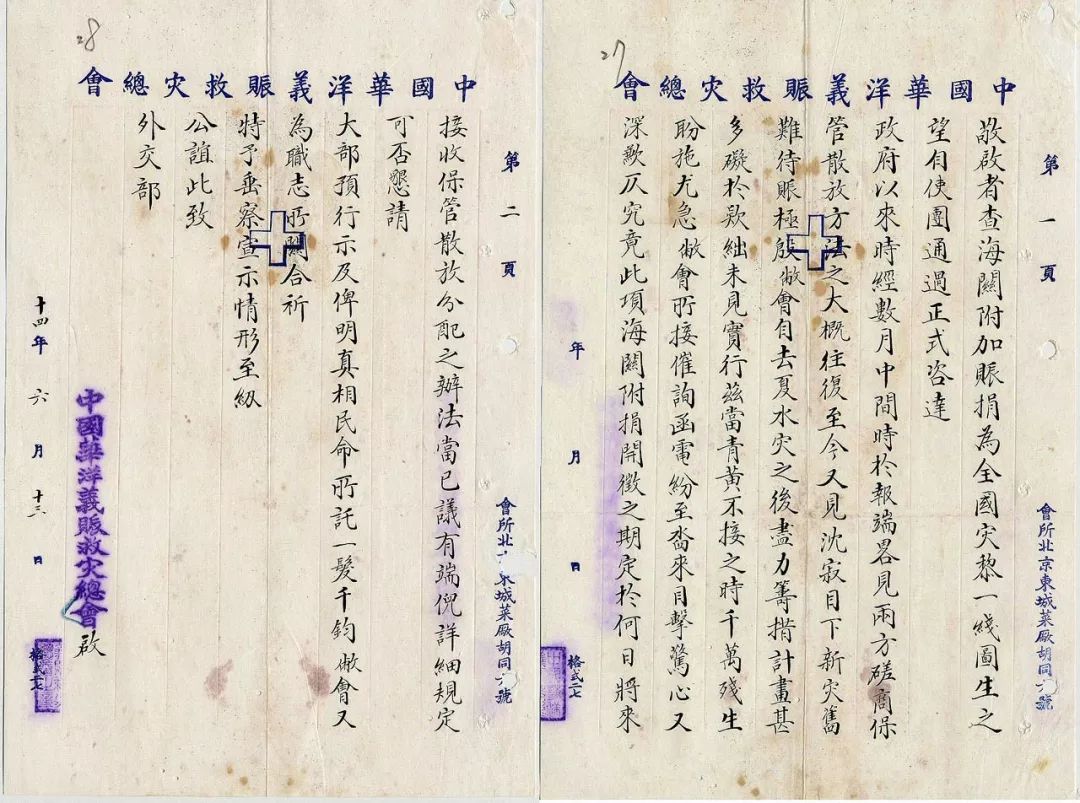 27
中國華洋義賑救灾總會
第一頁
會所北京東城菜厰胡同六號
敬啟者查海關附加賑捐為全國灾黎一綫圖生之
望自使團通過正式咨達
政府以來時經數月中間時於報端畧見兩方磋商保
管散放方法之大概往復至今又見沈寂目下新灾舊
難待賑極殷敝會自去夏水灾之後盡力籌措計畫甚
多礙於欵絀未見實行茲當青黃不接之時千萬殘生
盼施尤急敝會所接催詢函電紛至畓來目擊驚心又
深歉仄究竟此項海關附捐開徵之期定於何日將來
年 月 日
格式二七
28
中國華洋義賑救灾總會
第二頁
會所北京東城菜厰胡同六號
接收保管散放分配之辦法當已議有端倪詳細規定
可否懇請
大部預行示及俾明真相民命所託一髮千鈞敝會又
為職志所關合祈
特予垂察宣示情形至級
公誼此致
外交部
中國華洋義賑救灾總會啟
十四年 六月 十三日
格式二七